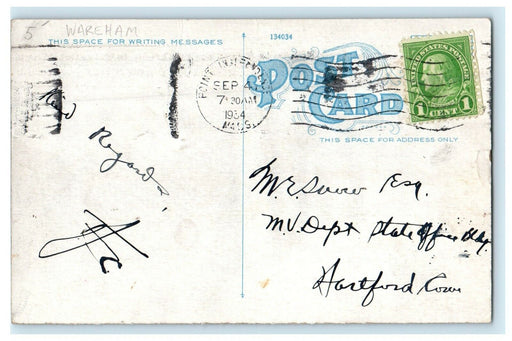 5 WAREHAM
THIS SPACE FOR WRITING MESSAGES
134034
POST CARD
THIS SPACE FOR ADDRESS ONLY
SEP 4
7-30AM
1934
MASS.
UNITED STATES POSTAGE
1 CENT 1
Regards,
M. E. Snow Esq.
M.V. Dept State Office Bldg.
Hartford Conn